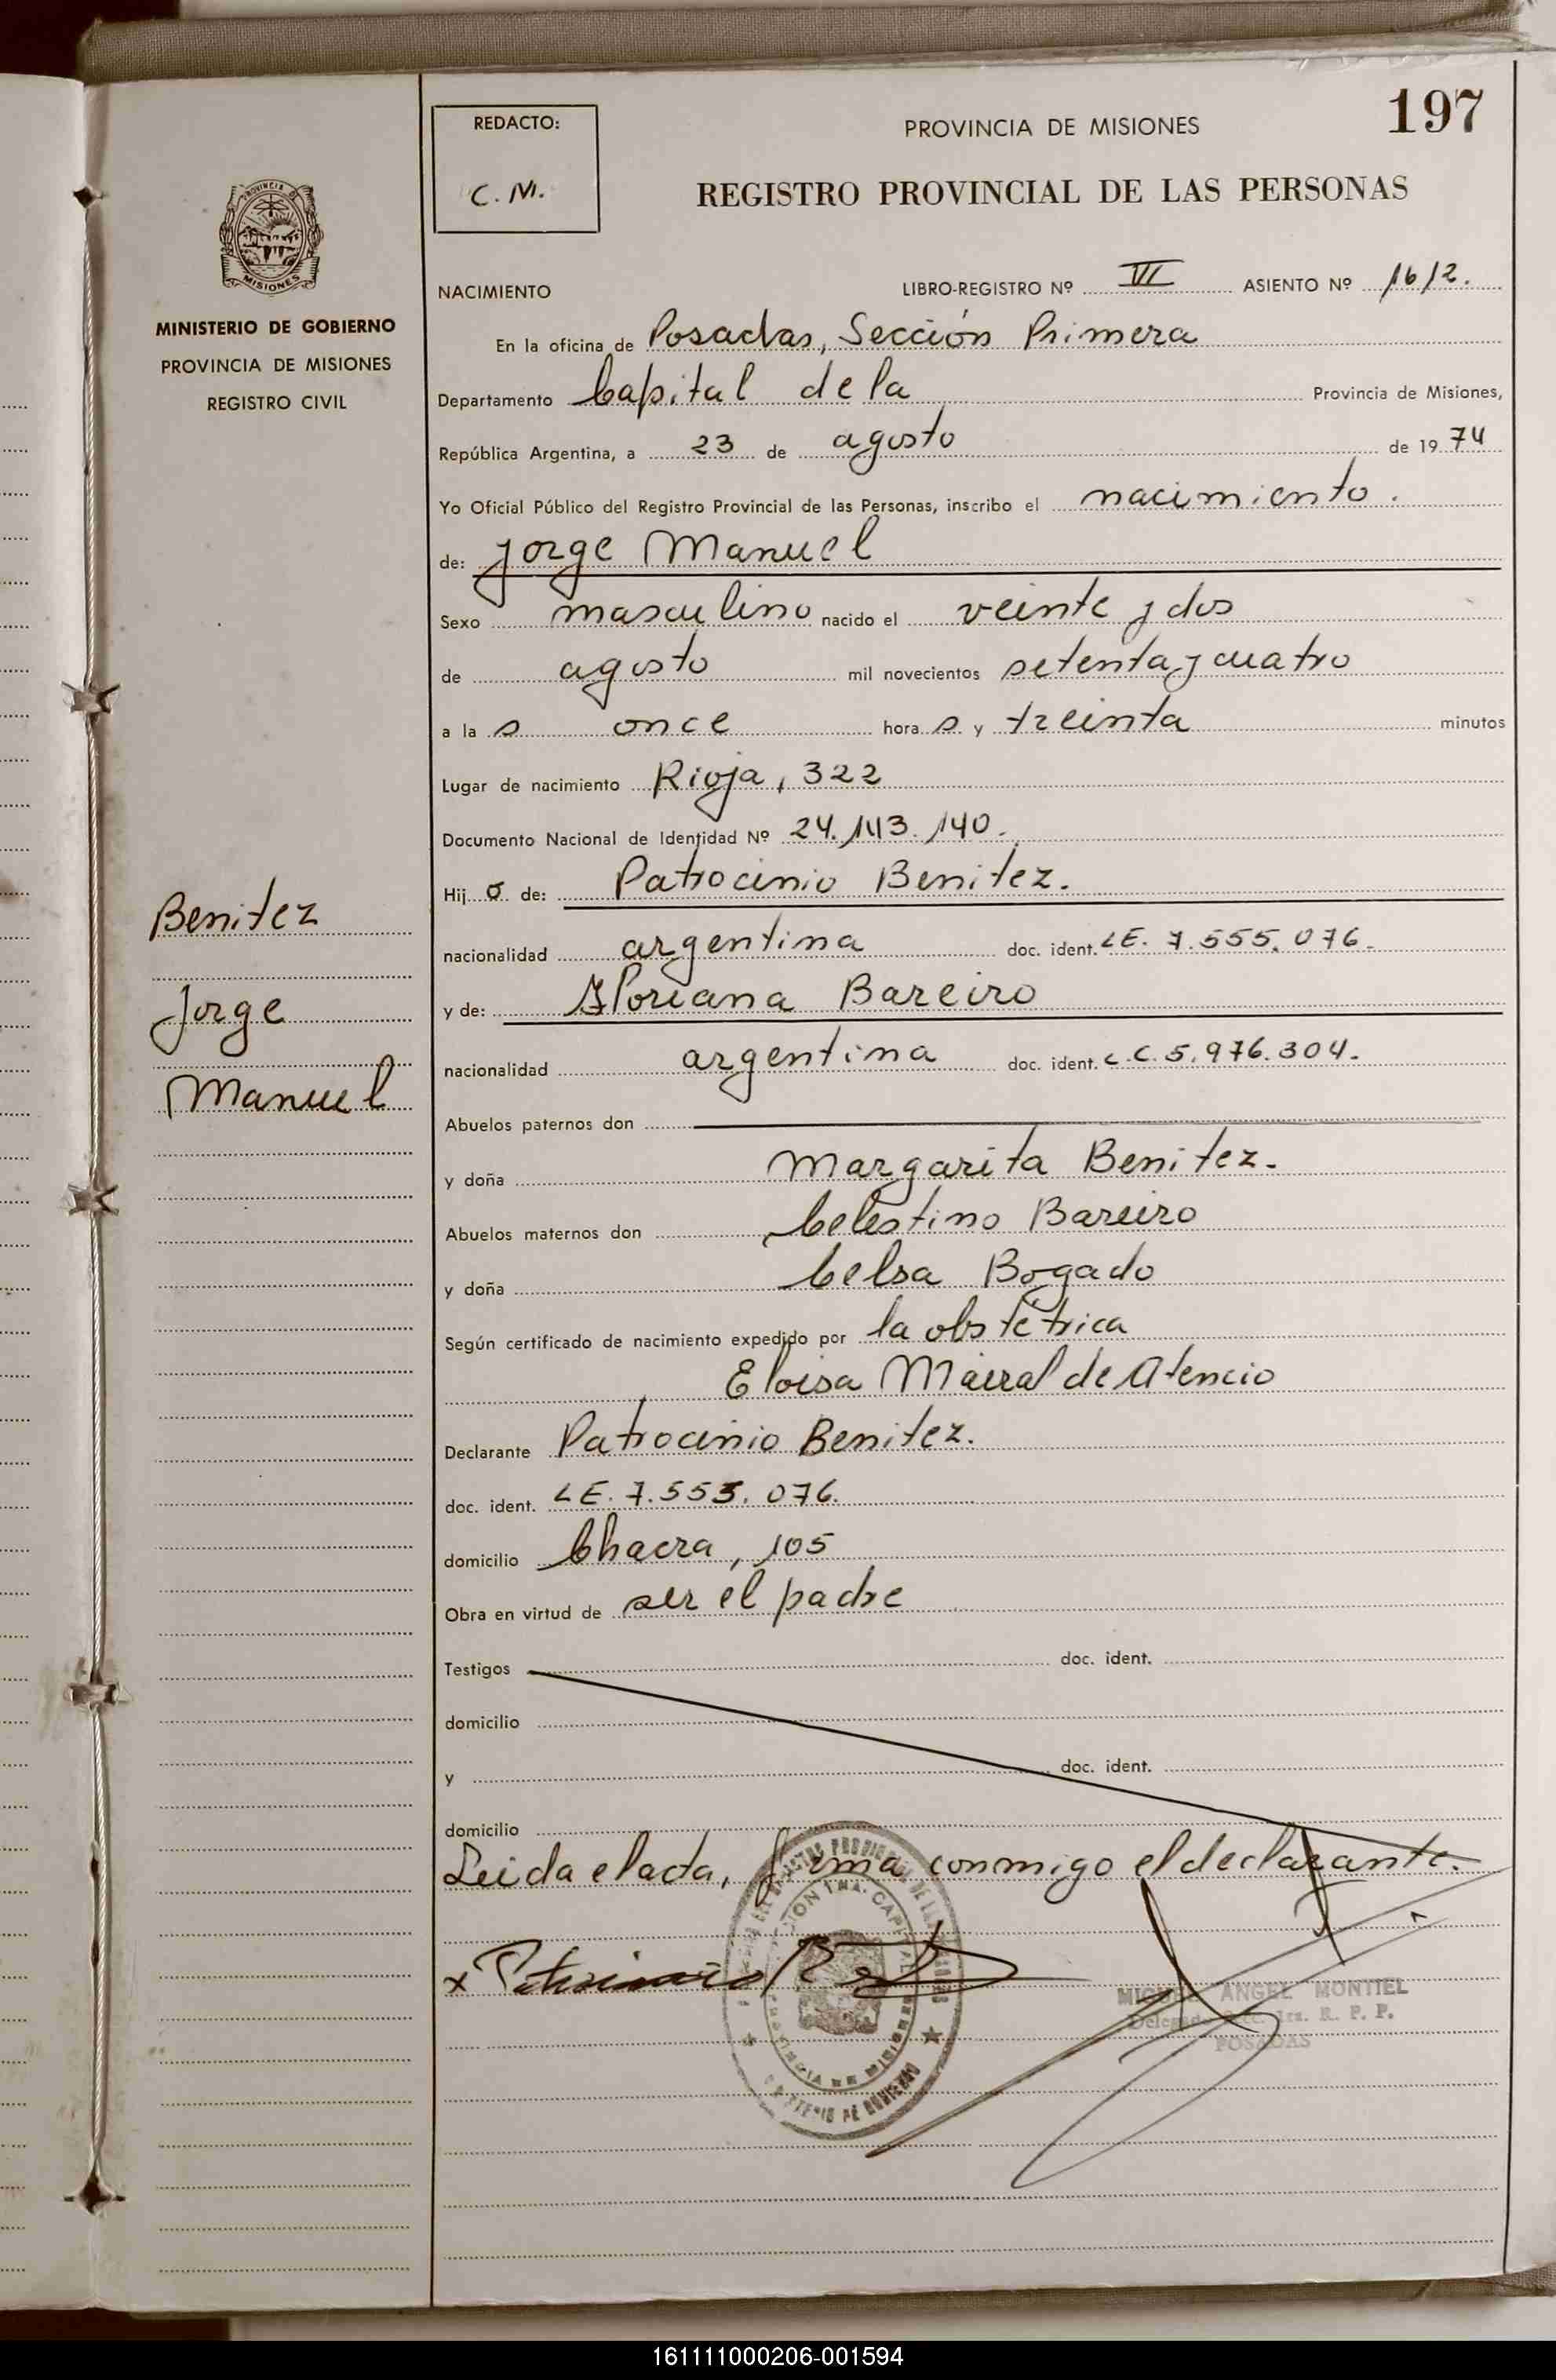 197
REDACTO:
C. M.
PROVINCIA DE MISIONES
REGISTRO PROVINCIAL DE LAS PERSONAS
PROVINCIA DE
MISIONES
MINISTERIO DE GOBIERNO
PROVINCIA DE MISIONES
REGISTRO CIVIL
NACIMIENTO LIBRO-REGISTRO Nº VI ASIENTO Nº 1612.
En la oficina de Posadas, Sección Primera
Departamento Capital de la Provincia de Misiones,
República Argentina, a 23 de agosto de 1974
Yo Oficial Público del Registro Provincial de las Personas, inscribo el nacimiento.
de: Jorge Manuel
Sexo masculino nacido el veinte y dos
de agosto mil novecientos setenta y cuatro
a la s once hora s y treinta minutos
Lugar de nacimiento Rioja, 322
Documento Nacional de Identidad Nº 24.143.140.
Hij o de: Patrocinio Benitez.
nacionalidad argentina doc. ident. LE. 7.555.076.
y de: Floriana Bareiro
nacionalidad argentina doc. ident. L.C. 5.976.304.
Abuelos paternos don
y doña Margarita Benitez.
Abuelos maternos don Celestino Bareiro
y doña Celsa Bogado
Según certificado de nacimiento expedido por la obstétrica
Eloisa Mairal de Atencio
Declarante Patrocinio Benitez.
doc. ident. LE. 7.555.076.
domicilio Chacra, 105
Obra en virtud de ser el padre
Testigos doc. ident.
domicilio
y doc. ident.
domicilio
Leida el acta, firma conmigo el declarante.
x Patrocinio
MIGUEL ANGEL MONTIEL
Delegado Sec. 1ra. R. P. P.
POSADAS
Benitez
Jorge
Manuel
161111000206-001594